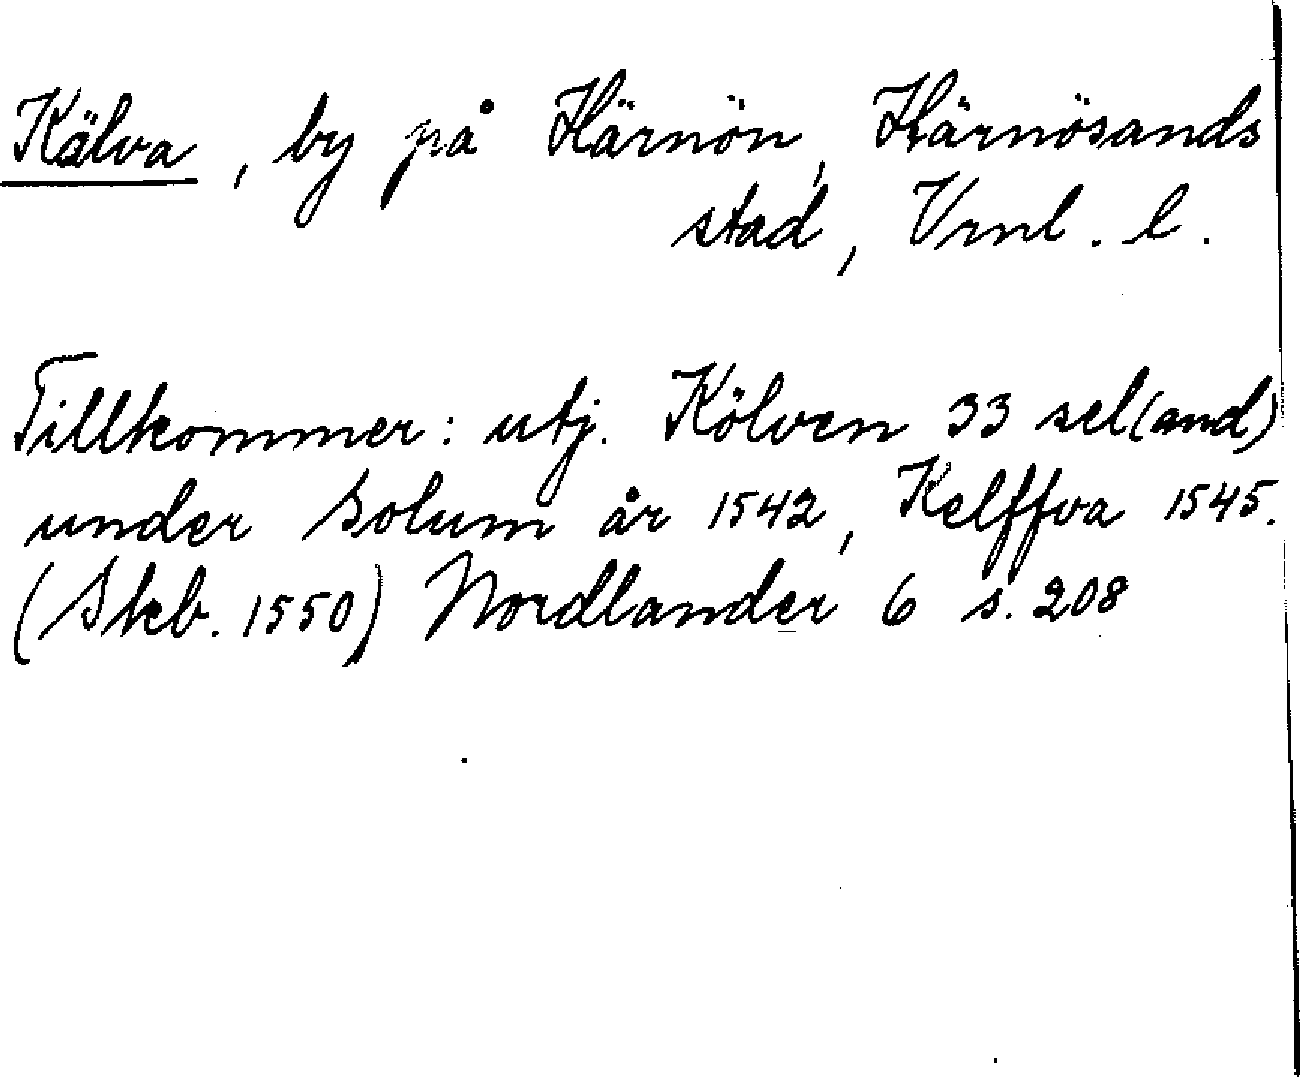 Kälva, by på Härnön, Härnösands
stad, Vrnl. l.
Tillkommer: utj. Kölven 33 sel(and)
under Solum år 1542, Kelffva 1545.
(Skb. 1550) Nordlander 6 s. 208